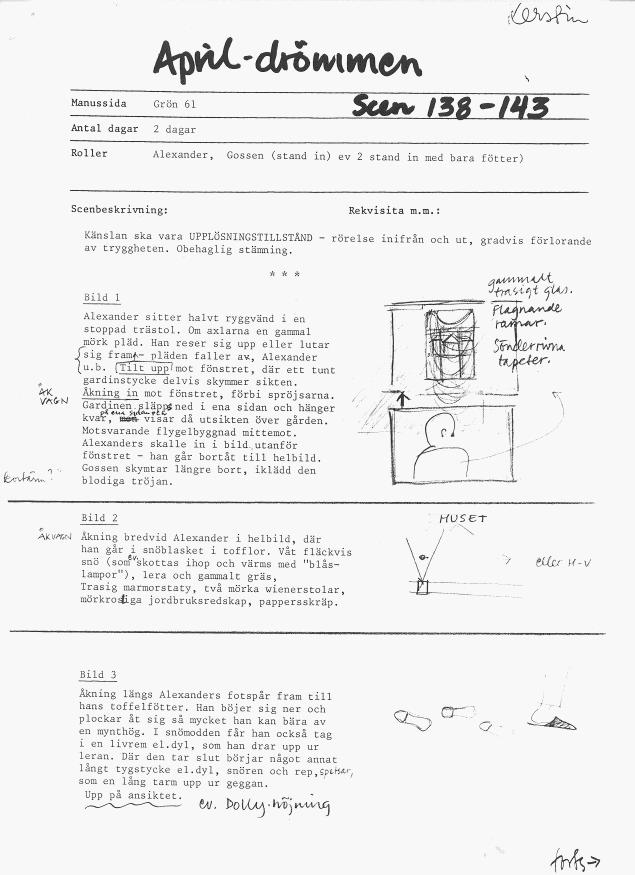 Kerstin
April-drömmen
Manussida Grön 61 Scen 138-143
Antal dagar 2 dagar
Roller Alexander, Gossen (stand in) ev 2 stand in med bara fötter)
Scenbeskrivning: Rekvisita m.m.:
Känslan ska vara UPPLÖSNINGSTILLSTÅND - rörelse inifrån och ut, gradvis förlorande
av tryggheten. Obehaglig stämning.
* * *
gammalt
trasigt glas.
Flagnande
ramar.
Sönderrivna
tapeter.
Bild 1
Alexander sitter halvt ryggvänd i en
stoppad trästol. Om axlarna en gammal
mörk pläd. Han reser sig upp eller lutar
sig fram - pläden faller av, Alexander
u.b. Tilt upp mot fönstret, där ett tunt
gardinstycke delvis skymmer sikten.
ÅK
VAGN
Åkning in mot fönstret, förbi spröjsarna.
Gardinen släpps ned i ena sidan och hänger
kvar, visar då utsikten över gården.
Motsvarande flygelbyggnad mittemot.
Alexanders skalle in i bild utanför
fönstret - han går bortåt till helbild.
Gossen skymtar längre bort, iklädd den
blodiga tröjan.
Bild 2
HUSET
ÅKVAGN
Åkning bredvid Alexander i helbild, där
han går i snöblasket i tofflor. Våt fläckvis
snö (som ev. skottas ihop och värms med "blås-
lampor"), lera och gammalt gräs,
Trasig marmorstaty, två mörka wienerstolar,
mörkrostiga jordbruksredskap, pappersskräp.
eller H-V
Bild 3
Åkning längs Alexanders fotspår fram till
hans toffelfötter. Han böjer sig ner och
plockar åt sig så mycket han kan bära av
en mynthög. I snömodden får han också tag
i en livrem el.dyl, som han drar upp ur
leran. Där den tar slut börjar något annat
långt tygstycke el.dyl, snören och rep, spetsar,
som en lång tarm upp ur geggan.
Upp på ansiktet. ev. Dolly-höjning
forts→